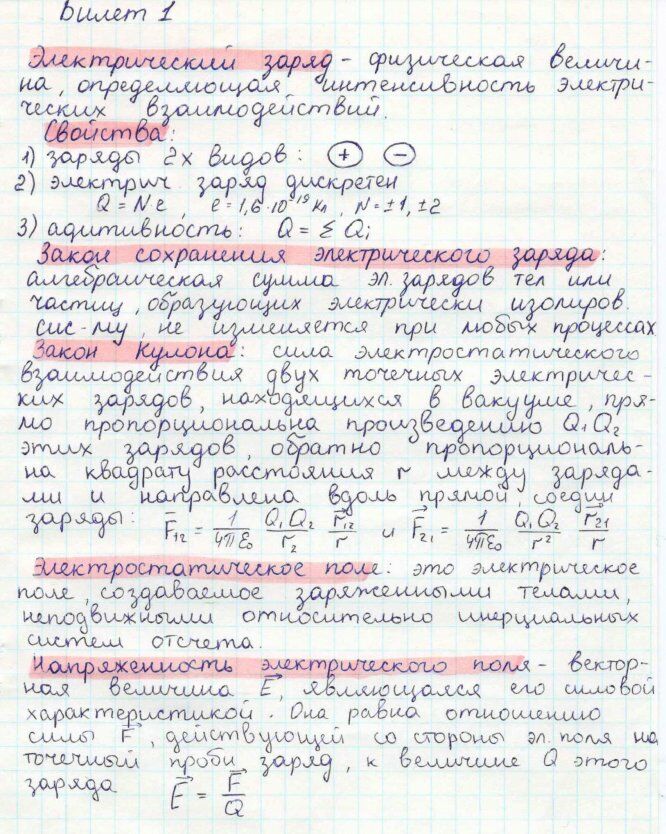 Билет 1
Электрический заряд - физическая величи-
на, определяющая интенсивность электри-
ческих взаимодействий.
Свойства:
1) заряды 2х видов: (+) (−)
2) электрич. заряд дискретен
Q = Ne, e = 1,6·10⁻¹⁹ Кл, N = ±1, ±2
3) адитивность: Q = Σ Qᵢ
Закон сохранения электрического заряда:
алгебраическая сумма эл. зарядов тел или
частиц, образующих электрически изолиров.
сис-му, не изменяется при любых процессах
Закон Кулона: сила электростатического
взаимодействия двух точечных электричес-
ких зарядов, находящихся в вакууме, пря-
мо пропорциональна произведению Q₁Q₂
этих зарядов, обратно пропорциональ-
на квадрату расстояния r между заряда-
ми и направлена вдоль прямой, соедин
заряды: F̅₁₂ = 1/4πε₀ Q₁Q₂/r₂ r̅₁₂/r и F⃗₂₁ = 1/4πε₀ Q₁Q₂/r² r⃗₂₁/r
Электростатическое поле: это электрическое
поле, создаваемое заряженными телами,
неподвижными относительно инерциальных
систем отсчета.
Напряженность электрического поля - вектор-
ная величина E⃗, являющаяся его силовой
характеристикой. Она равна отношению
силы F⃗, действующей со стороны эл. поля на
точечный пробн заряд, к величине Q этого
заряда E⃗ = F⃗/Q